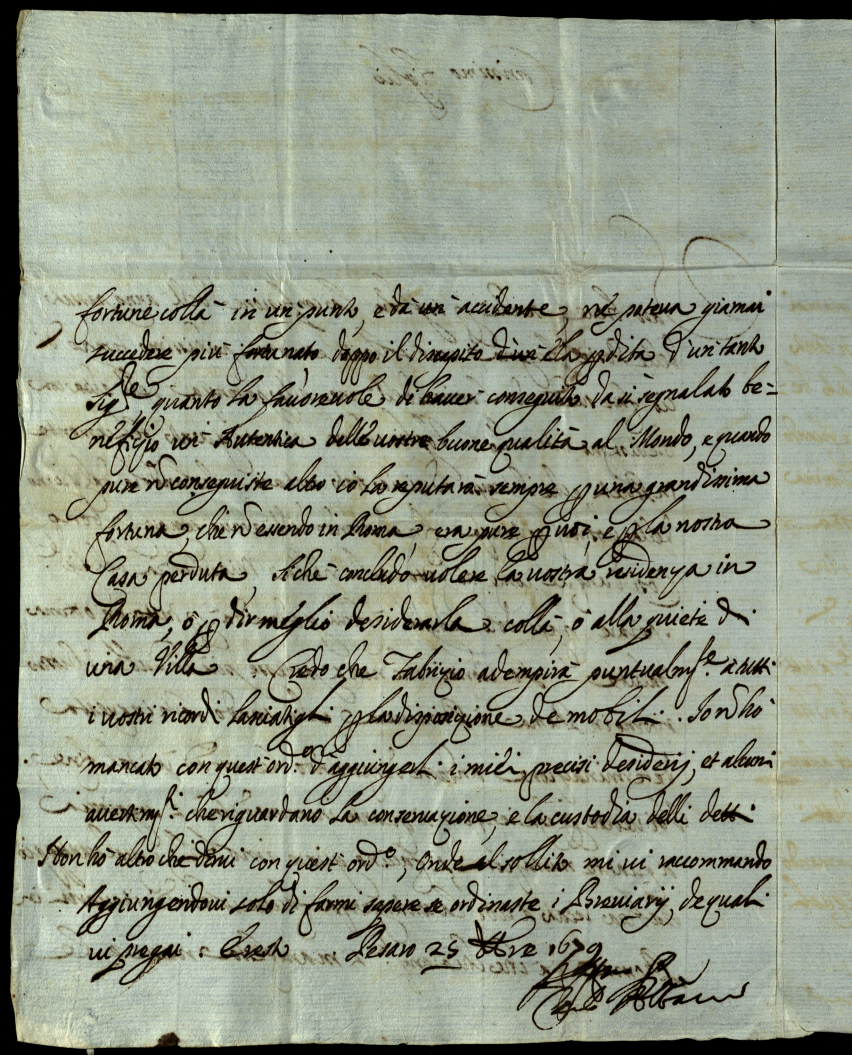 fortune collà in un punto, e da un' accidente, nè poteva giamai
succedere più fortunato doppo il disgusto d'un' la p̱dita d'un tanto
Sig.re quanto la favorevole de haver conseguito da sì segnalato be=
nefizio un' Autentica delle vostre buone qualità al Mondo, e quando
pure nō conseguiste altro io la reputarà sempre p̱ una grandissima
fortuna, che nō essendo in Roma era pure p̱ voi, e p̱ la nostra
Casa perduta, Sichè concludo volere la vostra residenza in
Roma, ò p̱ dir meglio desiderarla collà, ò alla quiete di
una Villa. Credo che Fabrizio adempirà puntualm.te à tutti
i vostri ricordi lasciatigli p̱ la disposizione de mobili. Io nō hò
mancato con quest' ord.o d'aggiungerli i miei precisi desiderij, et alcuni
avertim.ti che riguardano la conservazione, e la custodia delli detti
Non hò altro che dirvi con quest' ord.o, Onde al solito mi vi raccommando
Aggiungendovi solo di farmi sapere se ordinaste i Breviarij, de quali
vi pregai. Pesaro 25 Xbre 1679
Albani